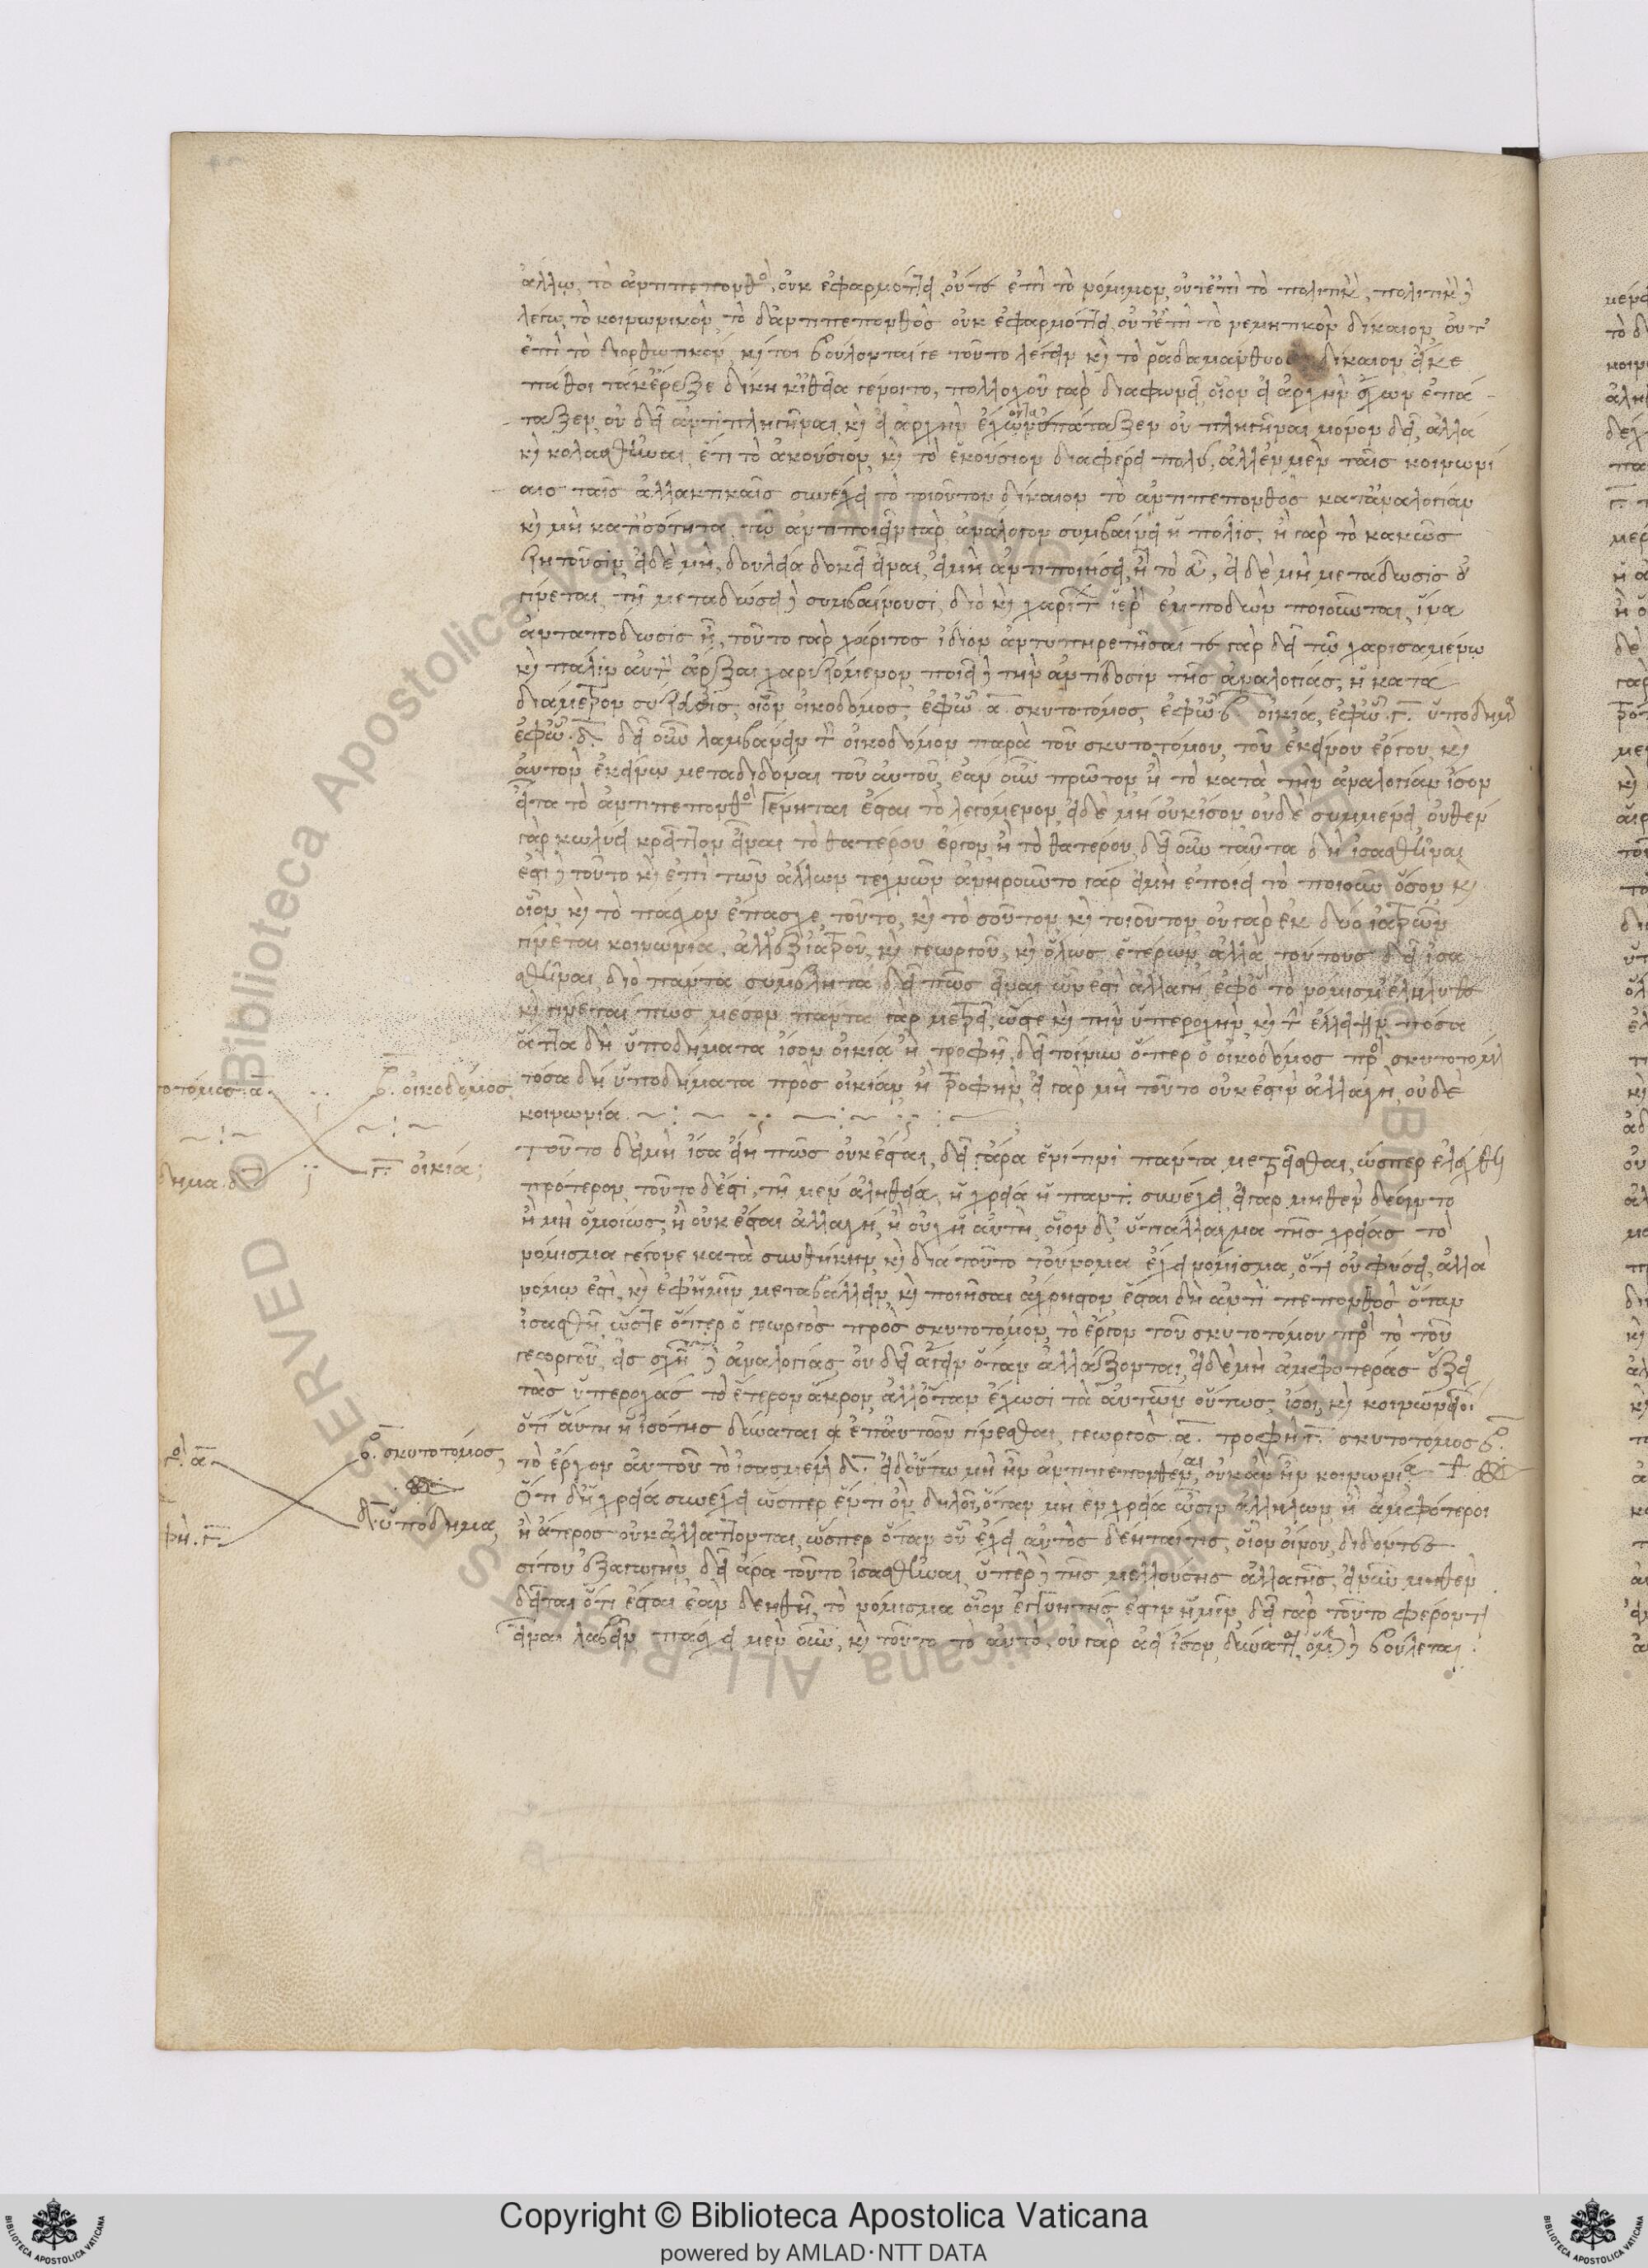 ἄλλῳ, τὸ ἀντιπεπονθὸς, οὐκ ἐφαρμόττει οὔτε ἐπὶ τὸ νόμιμον, οὔτ' ἐπὶ τὸ πολιτικὸν, πολιτικὸν δὲ
λέγω, τὸ κοινωνικὸν, τὸ δ' ἀντιπεπονθὸς οὐκ ἐφαρμόττει, οὔτ' ἐπὶ τὸ νεμητικὸν δίκαιον οὔτ'
ἐπὶ τὸ διορθωτικόν, καίτοι βούλονταί γε τοῦτο λέγειν καὶ τὸ ῥαδαμάνθυος δίκαιον εἴ κε
πάθοι τάκ' ἔρεξε δίκη κ' ἰθεῖα γένοιτο, πολλαχοῦ γὰρ διαφωνεῖ, οἷον εἰ ἀρχὴν ἔχων ἐπά
ταξεν, οὐ δεῖ ἀντιπληγῆναι, καὶ εἰ ἀρχὴν ἔχοντα ἐπάταξεν οὐ πληγῆναι μόνον δεῖ, ἀλλὰ
καὶ κολασθῆναι, ἔτι τὸ ἀκούσιον καὶ τὸ ἑκούσιον διαφέρει πολύ, ἀλλ' ἐν μὲν ταῖς κοινωνί
αις ταῖς ἀλλακτικαῖς συνέχει τὸ τοιοῦτον δίκαιον τὸ ἀντιπεπονθὸς κατ' ἀναλογίαν
καὶ μὴ κατ' ἰσότητα, τῷ ἀντιποιεῖν γὰρ ἀνάλογον συμβαίνει ἡ πόλις, ἢ γὰρ τὸ κακῶς
ζητοῦσιν, εἰ δὲ μὴ, δουλεία δοκεῖ εἶναι, εἰ μὴ ἀντιποιήσει, ἢ τὸ εὖ, εἰ δὲ μὴ μετάδωσις οὐ
γίνεται, τῇ μεταδώσει δὲ συμβαίνουσι, διὸ καὶ χαρίτων ἱερὸν ἐμποδὼν ποιοῦνται, ἵνα
ἀνταπόδωσις ᾖ, τοῦτο γὰρ χάριτος ἴδιον ἀντυπηρετῆσαί τε γὰρ δεῖ τῷ χαρισαμένῳ
καὶ πάλιν αὐτὸν ἄρξαι χαριζόμενον, ποιεῖ δὲ τὴν ἀντίδοσιν τῆς ἀναλογίας, ἡ κατὰ
διάμετρον σύζευξις, οἷον οἰκοδόμος, ἐφ' ᾧ α. σκυτοτόμος, ἐφ' ᾧ β οἰκία, ἐφ' ᾧ γ. ὑπόδημα
ἐφ' ᾧ δ. δεῖ οὖν λαμβάνειν τὸν οἰκοδόμον παρὰ τοῦ σκυτοτόμου, τοῦ ἐκείνου ἔργου, καὶ
αὐτὸν ἐκείνῳ μεταδιδόναι τοῦ αὑτοῦ, ἐὰν οὖν πρῶτον ᾖ τὸ κατὰ τὴν ἀναλογίαν ἴσον
εἶτα τὸ ἀντιπεπονθὸς γένηται ἔσται τὸ λεγόμενον, εἰ δὲ μὴ οὐκ ἴσον οὐδὲ συμμένει, οὐθὲν
γὰρ κωλύει κρεῖττον εἶναι τὸ θατέρου ἔργον, ἢ τὸ θατέρου, δεῖ οὖν ταῦτα δὴ ἰσασθῆναι,
ἐστὶ δὲ τοῦτο καὶ ἐπὶ τῶν ἄλλων τεχνῶν ἀνῃροῦντο γὰρ εἰ μὴ ἐποίει τὸ ποιοῦν ὅσον καὶ
οἷον καὶ τὸ πάσχον ἔπασχε τοῦτο, καὶ τοσοῦτον καὶ τοιοῦτον, οὐ γὰρ ἐκ δύο ἰατρῶν
γίνεται κοινωνία, ἀλλ' ἐξ ἰατροῦ, καὶ γεωργοῦ, καὶ ὅλως ἑτέρων, ἀλλὰ τούτους δεῖ ἰσα
σθῆναι, διὸ πάντα συμβλητὰ δεῖ πως εἶναι ὧν ἐστὶ ἀλλαγή, ἐφ' ὃ τὸ νόμισμ' ἐλήλυθε
καὶ γίνεταί πως μέσον, πάντα γὰρ μετρεῖ, ὥστε καὶ τὴν ὑπεροχὴν, καὶ τὴν ἔλλειψιν, πόσα
ἄττα δὴ ὑποδήματα ἴσον οἰκίᾳ ἢ τροφῇ, δεῖ τοίνυν ὅπερ ὁ οἰκοδόμος πρὸς σκυτοτόμον
τόσα δὴ ὑποδήματα πρὸς οἰκίαν, ἢ τροφὴν, εἰ γὰρ μὴ τοῦτο οὐκ ἔστιν ἀλλαγὴ, οὐδὲ
κοινωνία
Τοῦτο δ' εἰ μὴ ἴσα εἴη πως οὐκ ἔσται, δεῖ ἄρα ἑνί τινι πάντα μετρεῖσθαι, ὥσπερ ἐλέχθη
πρότερον, τοῦτο δ' ἐστὶ, τῇ μὲν ἀληθείᾳ, ἡ χρεία ἣ πάντα συνέχει, εἰ γὰρ μηθὲν δέοιντο
ἢ μὴ ὁμοίως, ἢ οὐκ ἔσται ἀλλαγή, ἢ οὐχ ἡ αὐτὴ, οἷον δ' ὑπάλλαγμα τῆς χρείας τὸ
νόμισμα γέγονε κατὰ συνθήκην, καὶ διὰ τοῦτο τοὔνομα ἔχει νόμισμα, ὅτι οὐ φύσει, ἀλλὰ
νόμῳ ἐστὶ, καὶ ἐφ' ἡμῖν μεταβάλλειν, καὶ ποιῆσαι ἄχρηστον, ἔσται δὴ ἀντιπεπονθὸς ὅταν
ἰσασθῇ, ὥστε ὅπερ ὁ γεωργὸς πρὸς σκυτοτόμον, τὸ ἔργον τοῦ σκυτοτόμου πρὸς τὸ τοῦ
γεωργοῦ, εἰς σχῆμα δὲ ἀναλογίας οὐ δεῖ ἄγειν ὅταν ἀλλάξονται, εἰ δὲ μὴ ἀμφοτέρας ἕξει
τὰς ὑπεροχὰς τὸ ἕτερον ἄκρον, ἀλλ' ὅταν ἔχωσι τὰ αὑτῶν οὕτως ἴσοι, καὶ κοινωνοί
ὅτι αὕτη ἡ ἰσότης δύναται ἐπ' αὐτῶν γίνεσθαι, γεωργὸς α. τροφὴ γ. σκυτοτόμος β.
τὸ ἔργον αὐτοῦ τὸ ἰσασμένον δ. εἰ δ' οὕτω μὴ ἦν ἀντιπεπονθέναι, οὐκ ἂν ἦν κοινωνία
Ὅτι δ' ἡ χρεία συνέχει ὥσπερ ἕν τι ὂν δηλοῖ, ὅταν μὴ ἐν χρείᾳ ὦσιν ἀλλήλων, ἢ ἀμφότεροι
ἢ ἅτερος οὐκ ἀλλάττονται, ὥσπερ ὅταν οὗ ἔχει αὐτὸς δέηταί τις, οἷον οἴνου, διδόντες
σίτου ἐξαγωγὴν, δεῖ ἄρα τοῦτο ἰσασθῆναι, ὑπὲρ δὲ τῆς μελλούσης ἀλλαγῆς, εἰ νῦν μηθὲν
δεῖται, ὅτι ἔσται ἐὰν δεηθῇ, τὸ νόμισμα οἷον ἐγγυητής ἐστιν ἡμῖν, δεῖ γὰρ τοῦτο φέροντι
εἶναι λαβεῖν, πάσχει μὲν οὖν, καὶ τοῦτο τὸ αὐτό, οὐ γὰρ ἀεὶ ἴσον δύναται, ὅμως δὲ βούλεται
τοτόμος α
β. οἰκοδόμος
δημα δ
γ. οἰκία
γο α
β. σκυτοτόμος
φὴ. γ
δ. ὑπόδημα
© Biblioteca Apostolica Vaticana ALL RIGHTS RESERVED
Copyright © Biblioteca Apostolica Vaticana
powered by AMLAD·NTT DATA
BIBLIOTECA APOSTOLICA VATICANA
BIBLIOTECA APOSTOLICA VATICANA